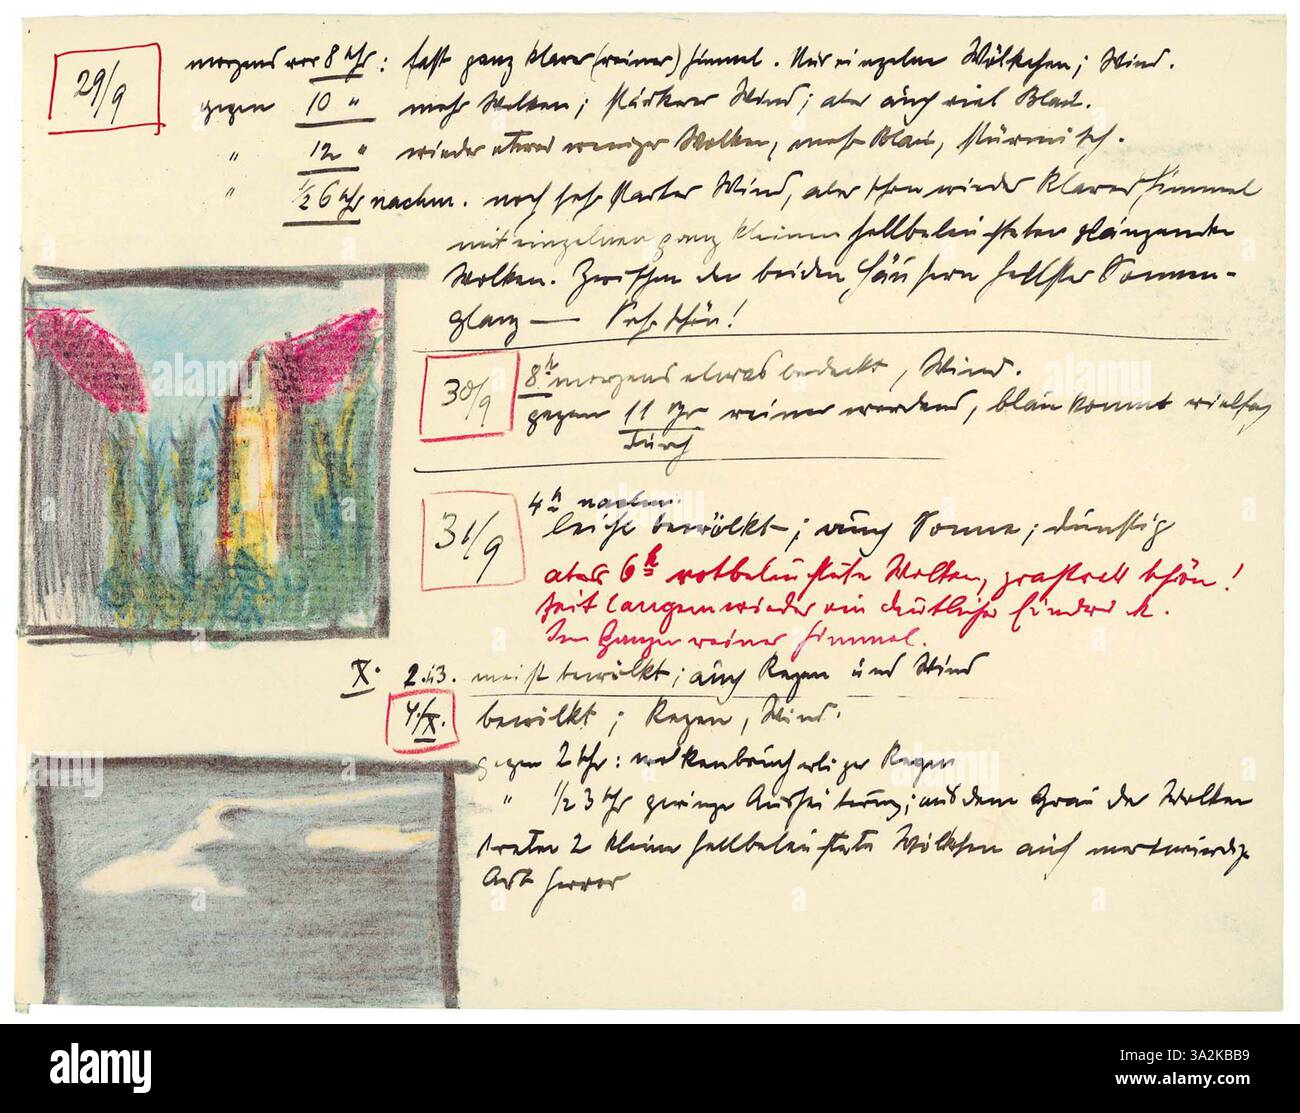 29/9 morgens vor 8 Uhr: fast ganz klarer (reiner) Himmel. Nur einzelne Wölkchen; Wind.
gegen 10 " mehr Wolken; stärkerer Wind; aber auch viel Blau.
" 12 " wieder etwas weniger Wolken, mehr Blau, stürmisch.
" 1/2 6 Uhr nachm. noch sehr starker Wind, aber schon wieder klarer Himmel
mit einzelnen ganz kleinen hellbeleuchteten glänzenden
Wolken. Zwischen den beiden Häusern hellster Sonnen-
glanz — Sehr schön!
30/9 8 h morgens etwas bedeckt, Wind.
gegen 11 Uhr reiner werdend, blau kommt vielfach
durch
31/9 4 h nachm.
leicht bewölkt; auch Sonne; dunstig
aber 6 h rotbeleuchtete Wolken, prachtvoll schön!
Seit langem wieder ein deutlicher Eindruck.
Im Ganzen reiner Himmel.
X. 2. u 3. meist bewölkt; auch Regen und Wind
4./X. bewölkt; Regen, Wind.
gegen 2 Uhr: wolkenbruchartiger Regen
" 1/2 3 Uhr geringe Aufheiterung; aus dem Grau der Wolken
treten 2 kleine hellbeleuchtete Wölkchen auf merkwürdige
Art hervor
alamy
Image ID: 3A2KBB9
www.alamy.com